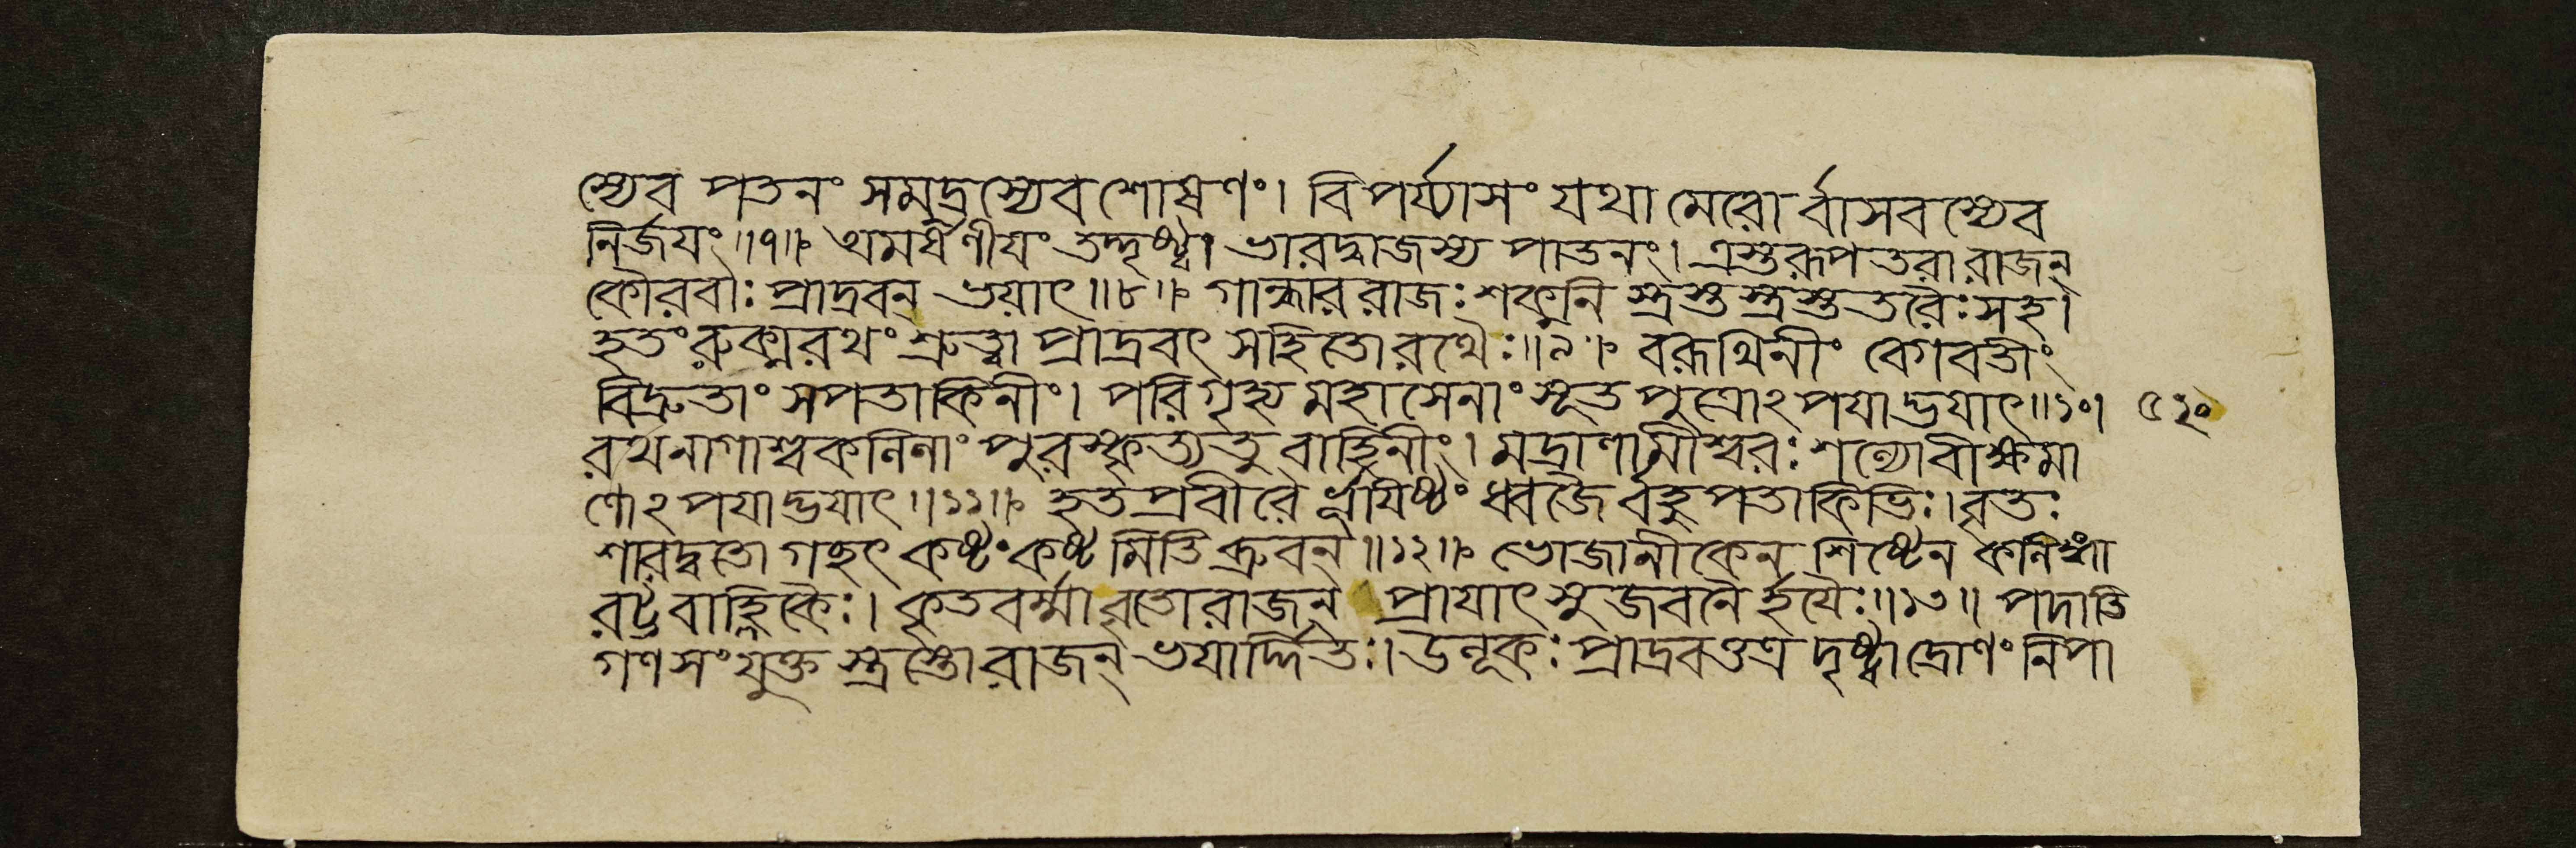 স্যেব পতনং সমদ্রস্যেব শোষণং। বিপর্য্যাসং যথা মেরো র্বাসবস্যেব
নির্জযং॥৭॥ অমর্ষণীযং তদ্দৃষ্ট্বা ভারদ্বাজস্য পাতনং। ত্রস্তরূপতরা রাজন্
কৌরবাঃ প্রাদ্রবন্ ভয়াৎ॥৮॥ গান্ধাররাজঃ শকুনি স্ত্রস্তস্ত্রস্ততরৈঃ সহ।
হতং রুক্মরথং শ্রুত্বা প্রাদ্রবৎ সহিতো রথৈঃ॥৯॥ বরূথিনীং বেগবতীং
বিদ্রুতাং সপতাকিনীং। পরিগৃহ্য মহাসেনাং সূতপুত্রোঽপযাদ্ভযাৎ॥১০। ৫২০
রথনাগাশ্বকলিলাং পুরস্কৃত্য তু বাহিনীং। মদ্রাণামীশ্বরঃ শল্যো বীক্ষমা
ণোঽপযাদ্ভযাৎ॥১১॥ হতপ্রবীরৈ র্ভূযিষ্ঠং ধ্বজৈ র্বহুপতাকিভিঃ। বৃতঃ
শারদ্বতো গছৎ কষ্টং কষ্ট মিতি ব্রুবন্॥১২॥ ভোজানীকেন শিষ্টেন কলিঙ্গা
রট্টবাহ্লিকৈঃ। কৃতবর্ম্মা বৃতো রাজন্ প্রাযাৎ সুজবনৈ র্হযৈঃ॥১৩॥ পদাতি
গণসংযুক্ত স্ত্রস্তো রাজন্ ভযার্দ্দিতঃ। উলূকঃ প্রাদ্রবত্তত্র দৃষ্ট্বা দ্রোণং নিপা